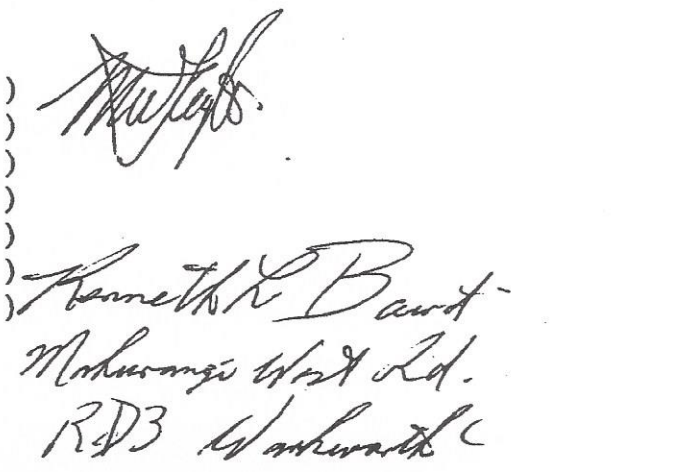 )
)
)
)
)
)
)
Kenneth L
Mahurangi West Rd.
RD3 Warkworth